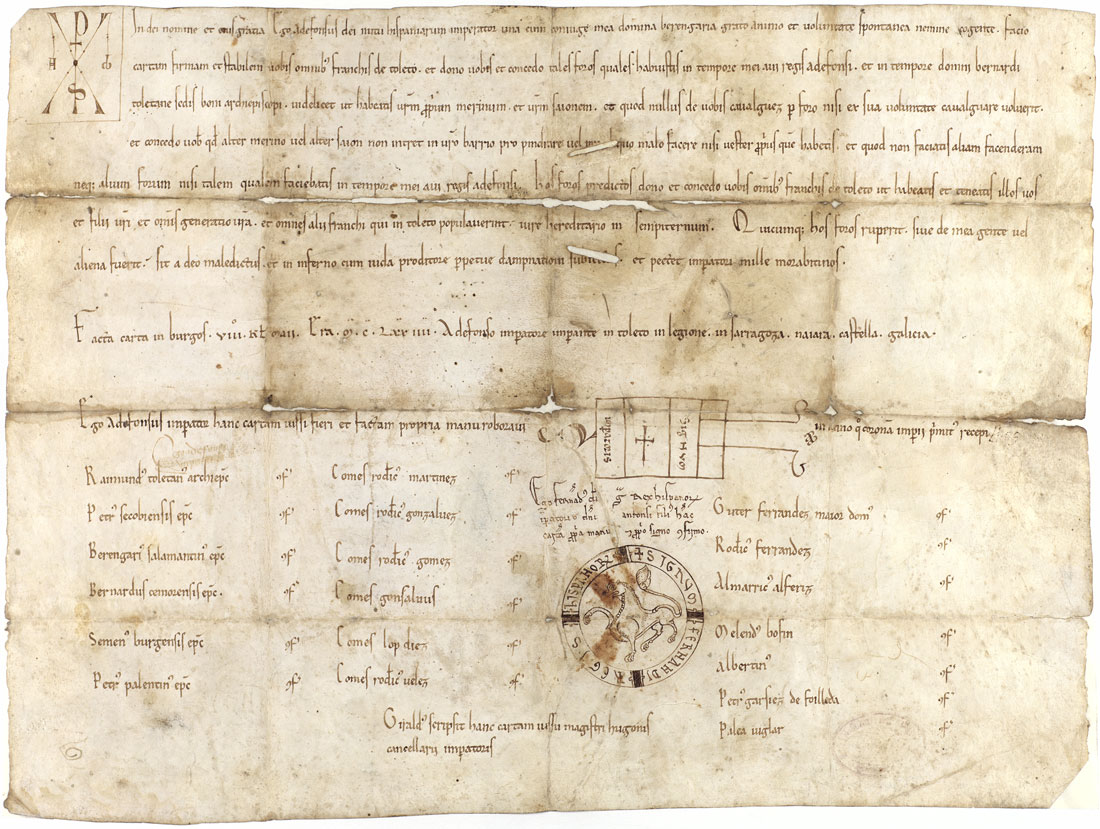 In dei nomine et eius gratia Ego adefonsus dei nutu hispaniarum imperator una cum coniuge mea domina berengaria grato animo et voluntate spontanea nemine cogente. facio
cartam firmam et stabilem uobis omnibus franchis de toleto. et dono uobis et concedo tales foros quales habuistis in tempore mei aui regis adefonsi. et in tempore domini bernardi
toletane sedis boni archiepiscopi. uidelicet ut habeatis urm pprium merinum. et urm saionem. et quod nullus de uobis caualguez p foro nisi ex sua uoluntate caualguare uoluerit.
et concedo uob qd alter merino uel alter saion non intret in uro barrio pro pindrare uel malo facere nisi uester pprius que habetis. et quod non faciatis aliam facenderam
neq; alium forum nisi talem qualem faciebatis in tempore mei aui regis adefonsi. Hos foros predictos dono et concedo uobis omnib franchis de toleto ut habeatis et teneatis illos uos
et filii uri et omis generatio ura. et omnes alii franchi qui in toleto populauerint. iure hereditario in sempiternum. Quicumq; hos foros ruperit. siue de mea gente uel
aliena fuerit. sit a deo maledictus. et in inferno cum iuda proditore ppetue dampnationi et pectet impatori mille morabitinos.
Facta carta in burgos. VIII. kl maii. Era. M. C. LXX IIII. Adefonso impatore impante in toleto in legione. in sarragoza. naiara. castella. galicia.
Ego Adefonsus impator hanc cartam iussi fieri et factam propria manu roboraui in anno q coronam impii pmit recepi
SIGNUM
Raimund toletan archiepc cf
Petr secobiensis epc cf
Berengari salamantin epc cf
Bernardus cemorensis epc. cf
Semen burgensis epc cf
Petr palentin epc cf
Comes rodic martinez cf
Comes rodic gonzaluez cf
Comes rodic gomez cf
Comes gonsaluus cf
Comes lop diez cf
Comes rodic uelez cf
Ego fernand di g rex hispanor
ipatoris dni antonii fili hac
carta ppa manu ppo signo cfirmo.
SIGNUM FERNANDI REGIS HISPANORUM
Guter ferrandez maior dom cf
Rodic ferrandez cf
Almarric alferiz cf
Melend bofin cf
Albertin cf
Petr garsiez de foilleda cf
Palea iuglar cf
Girald scripsit hanc cartam iussu magistri hugonis
cancellarii impatoris